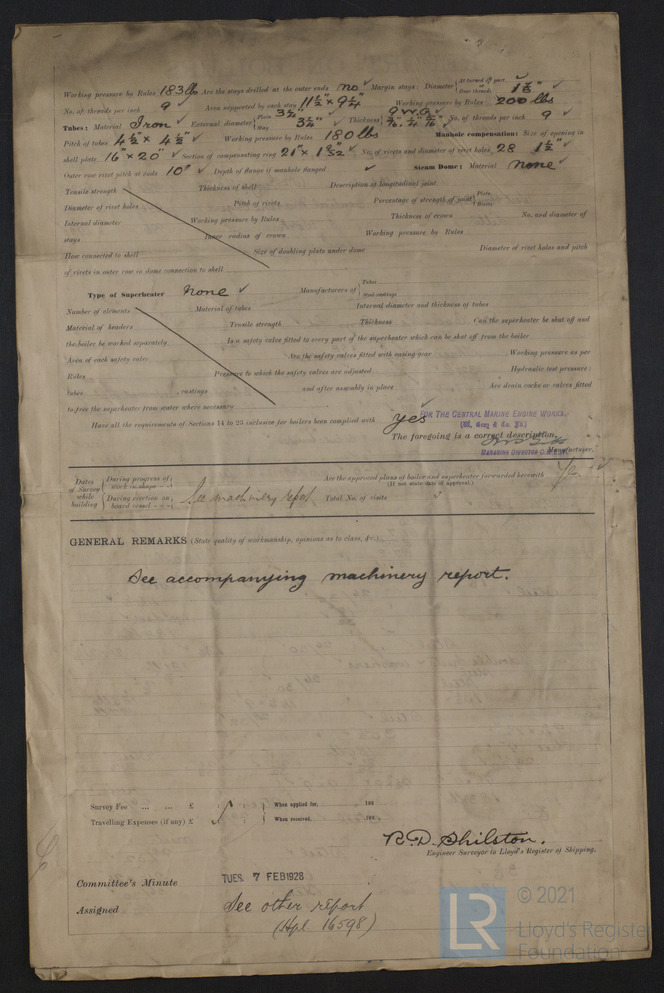 Working pressure by Rules 183 lb Are the stays drilled at the outer ends no ✓ Margin stays: Diameter { At turned off part, or Over threads 1 5/8" ✓
No. of threads per inch 9 ✓ Area supported by each stay 11 1/2" × 9 1/4" Working pressure by Rules 200 lbs
Tubes: Material Iron ✓ External diameter { Plain 3 1/4" ✓ Stay 3 1/4" ✓ Thickness { 9 W.G. ✓ No. of threads per inch 9 ✓
Pitch of tubes 4 1/2" × 4 1/2" ✓ Working pressure by Rules 180 lbs Manhole compensation: Size of opening in
shell plate 16" × 20" ✓ Section of compensating ring 21" × 1 9/32" ✓ No. of rivets and diameter of rivet holes 28 1 1/2" ✓
Outer row rivet pitch at ends 10" ✓ Depth of flange if manhole flanged ✓ Steam Dome: Material none ✓
Tensile strength Thickness of shell Description of longitudinal joint
Diameter of rivet holes Pitch of rivets Percentage of strength of joint { Plate Rivets
Internal diameter Working pressure by Rules Thickness of crown No. and diameter of
stays Inner radius of crown Working pressure by Rules
How connected to shell Size of doubling plate under dome Diameter of rivet holes and pitch
of rivets in outer row in dome connection to shell
Type of Superheater none ✓ Manufacturers of { Tubes Steel castings
Number of elements Material of tubes Internal diameter and thickness of tubes
Material of headers Tensile strength Thickness Can the superheater be shut off and
the boiler be worked separately Is a safety valve fitted to every part of the superheater which can be shut off from the boiler
Area of each safety valve Are the safety valves fitted with easing gear Working pressure as per
Rules Pressure to which the safety valves are adjusted Hydraulic test pressure:
tubes , castings and after assembly in place Are drain cocks or valves fitted
to free the superheater from water where necessary
Have all the requirements of Sections 14 to 23 inclusive for boilers been complied with yes ✓
FOR THE CENTRAL MARINE ENGINE WORKS.
(Wm. Gray & Co. Ld.)
The foregoing is a correct description,
MANAGING DIRECTOR C.M.E.W. Manufacturer.
Dates of Survey while building { During progress of work in shops - - During erection on board vessel - - - See machinery report Are the approved plans of boiler and superheater forwarded herewith
(If not state date of approval.)
Total No. of visits
GENERAL REMARKS (State quality of workmanship, opinions as to class, &c.)
See accompanying machinery report.
Survey Fee ... ... £ When applied for, 192
Travelling Expenses (if any) £ When received, 192
R.D. Shilston.
Engineer Surveyor to Lloyd's Register of Shipping.
Committee's Minute TUES. 7 FEB 1928
Assigned See other report
(Hpl. 16598)
LR © 2021
Lloyd's Register
Foundation